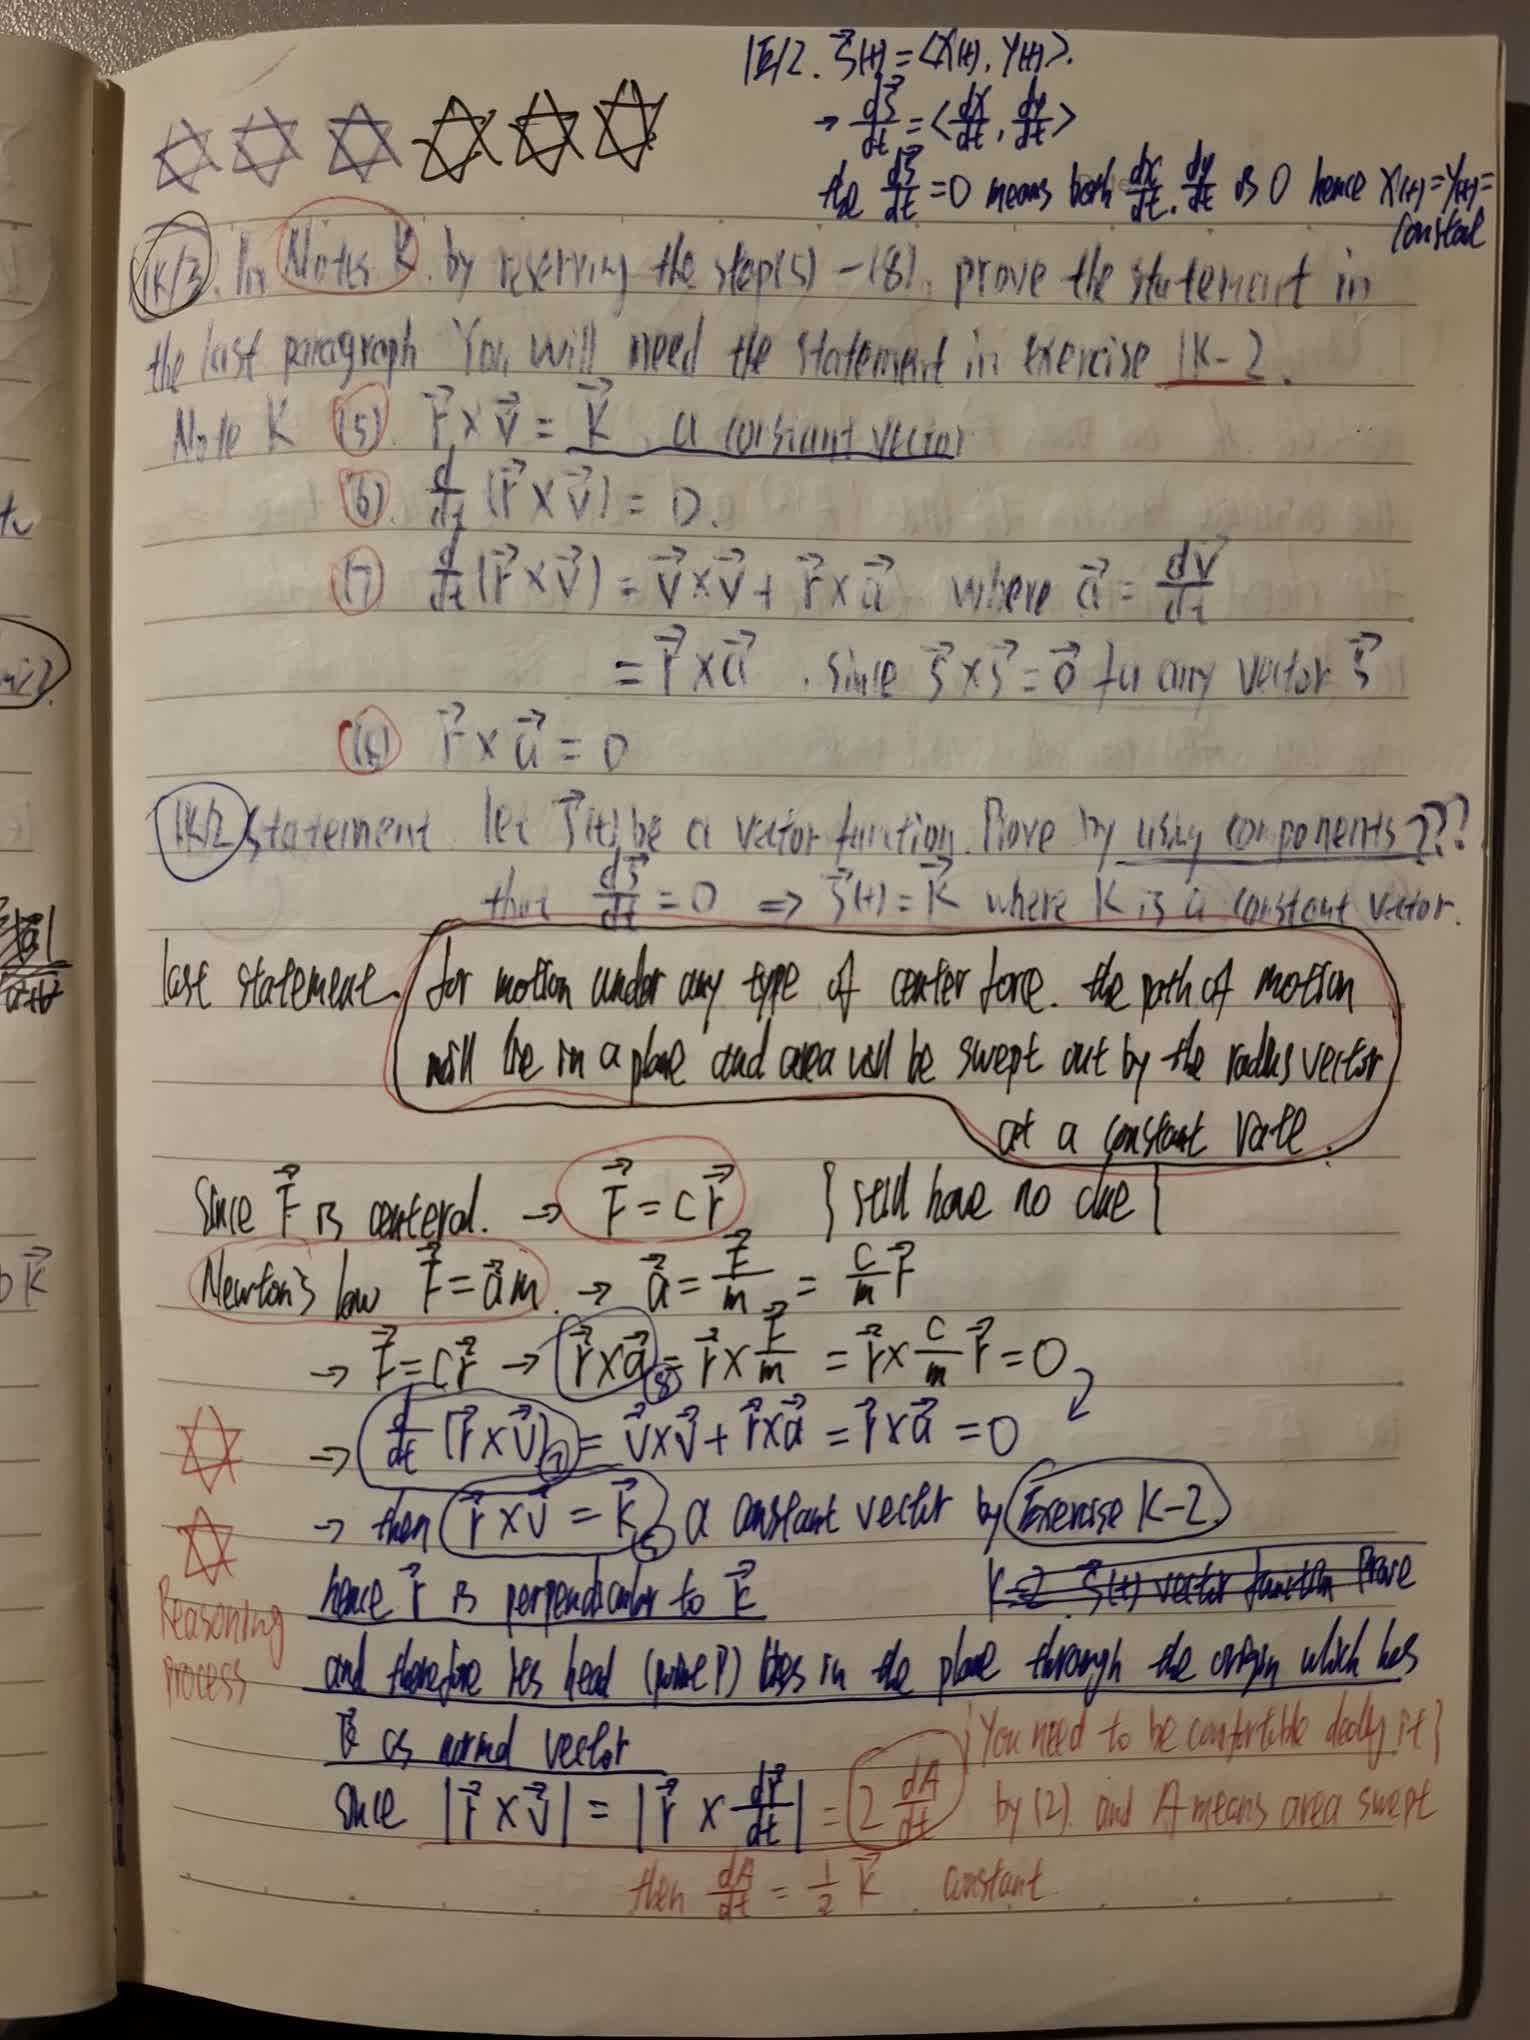 1K/2. s⃗(t) = ⟨x(t), y(t)⟩.
→ ds⃗/dt = ⟨dx/dt, dy/dt⟩
the ds⃗/dt = 0 means both dx/dt, dy/dt is 0 hence x(t) = y(t) =
constat
1K/3. In Notes K. by reserving the step(5) - (8), prove the statement in
the last paragraph You will need the statement in exercise 1K-2.
Note K (5). r⃗ × v⃗ = K⃗, a constant vector
(6). d/dt (r⃗ × v⃗) = 0.
(7) d/dt (r⃗ × v⃗) = v⃗ × v⃗ + r⃗ × a⃗ where a⃗ = dv⃗/dt
= r⃗ × a⃗. since s⃗ × s⃗ = 0⃗ for any vector s⃗
(8) r⃗ × a⃗ = 0
1K/2 statement let s⃗(t) be a vector function. Prove by using components???
that ds⃗/dt = 0 ⇒ s⃗(t) = K⃗ where K is a constant vector.
last statement. for motion under any type of center force. the path of motion
will lie in a plane and area will be swept out by the radius vector
at a constant rate.
Since F⃗ is centeral. → F⃗ = c r⃗ { still have no clue }
Newton's law F⃗ = a⃗m. → a⃗ = F⃗/m = c/m r⃗
→ F⃗ = c r⃗ → r⃗ × a⃗ (8) = r⃗ × F⃗/m = r⃗ × c/m r⃗ = 0
→ d/dt (r⃗ × v⃗) (7) = v⃗ × v⃗ + r⃗ × a⃗ = r⃗ × a⃗ = 0
→ then r⃗ × v⃗ = K⃗ (5) a constant vector by Exercise K-2.
hence r⃗ is perpendicular to K⃗ K-2 s⃗(t) vector function Prove
Reasoning
process
and therefore its head (point P) lies in the plane through the origin which has
K⃗ as normal vector
{You need to be comfortble dealing it}
since |r⃗ × v⃗| = |r⃗ × dr⃗/dt| = 2 dA/dt by (2). and A means area swept
then dA/dt = 1/2 K⃗ constant